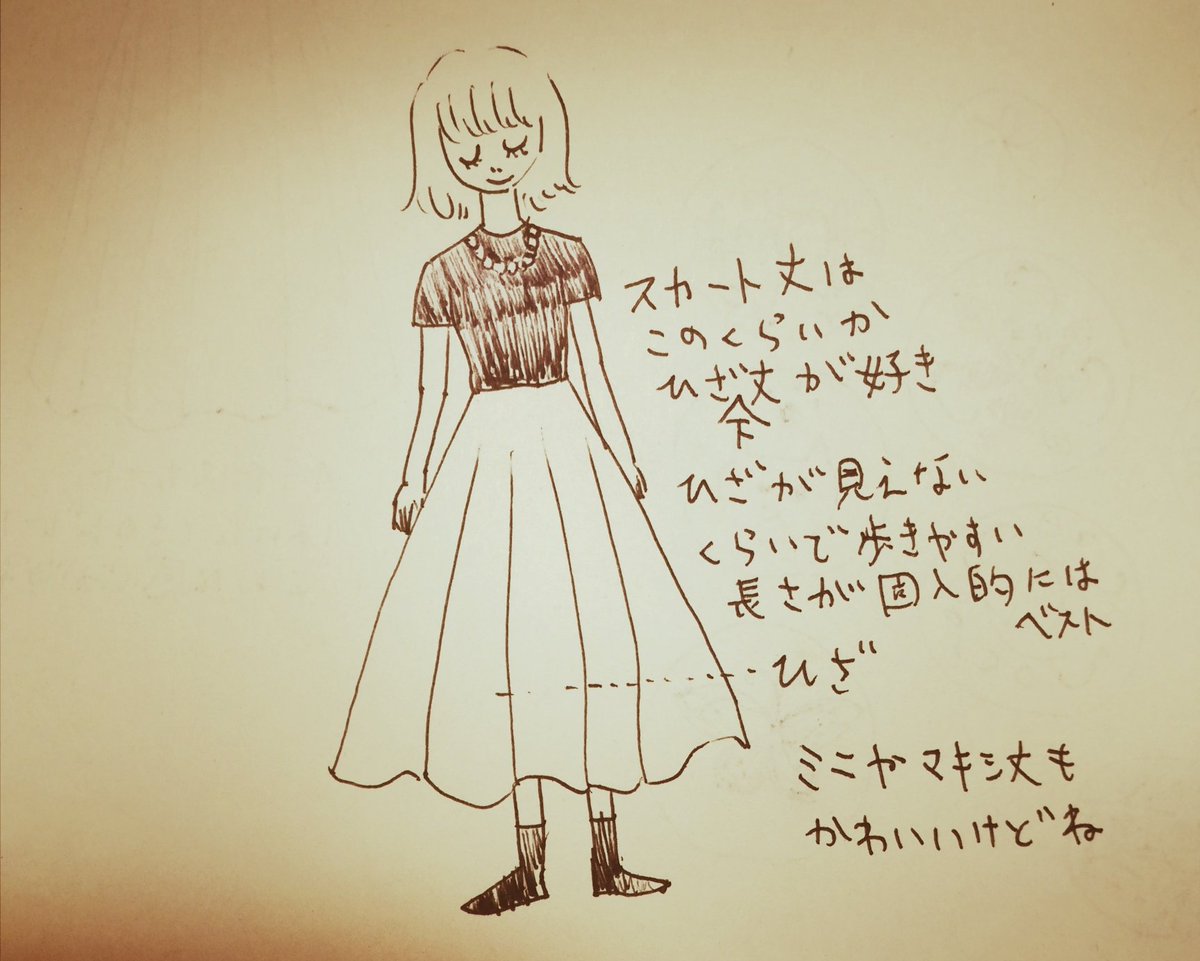 スカート丈は
このくらいか
ひざ下丈が好き
ひざが見えない
くらいで歩きやすい
長さが固人的には
ベスト
ひざ
ミニやマキシ丈も
かわいいけどね